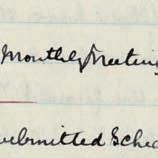 Monthly Meeting
submitted Sche